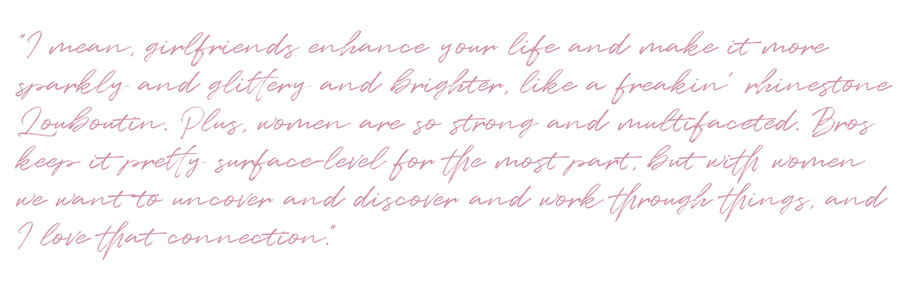 "I mean, girlfriends enhance your life and make it more
sparkly and glittery and brighter, like a freakin' rhinestone
Louboutin. Plus, women are so strong and multifaceted. Bros
keep it pretty surface-level for the most part, but with women
we want to uncover and discover and work through things, and
I love that connection."